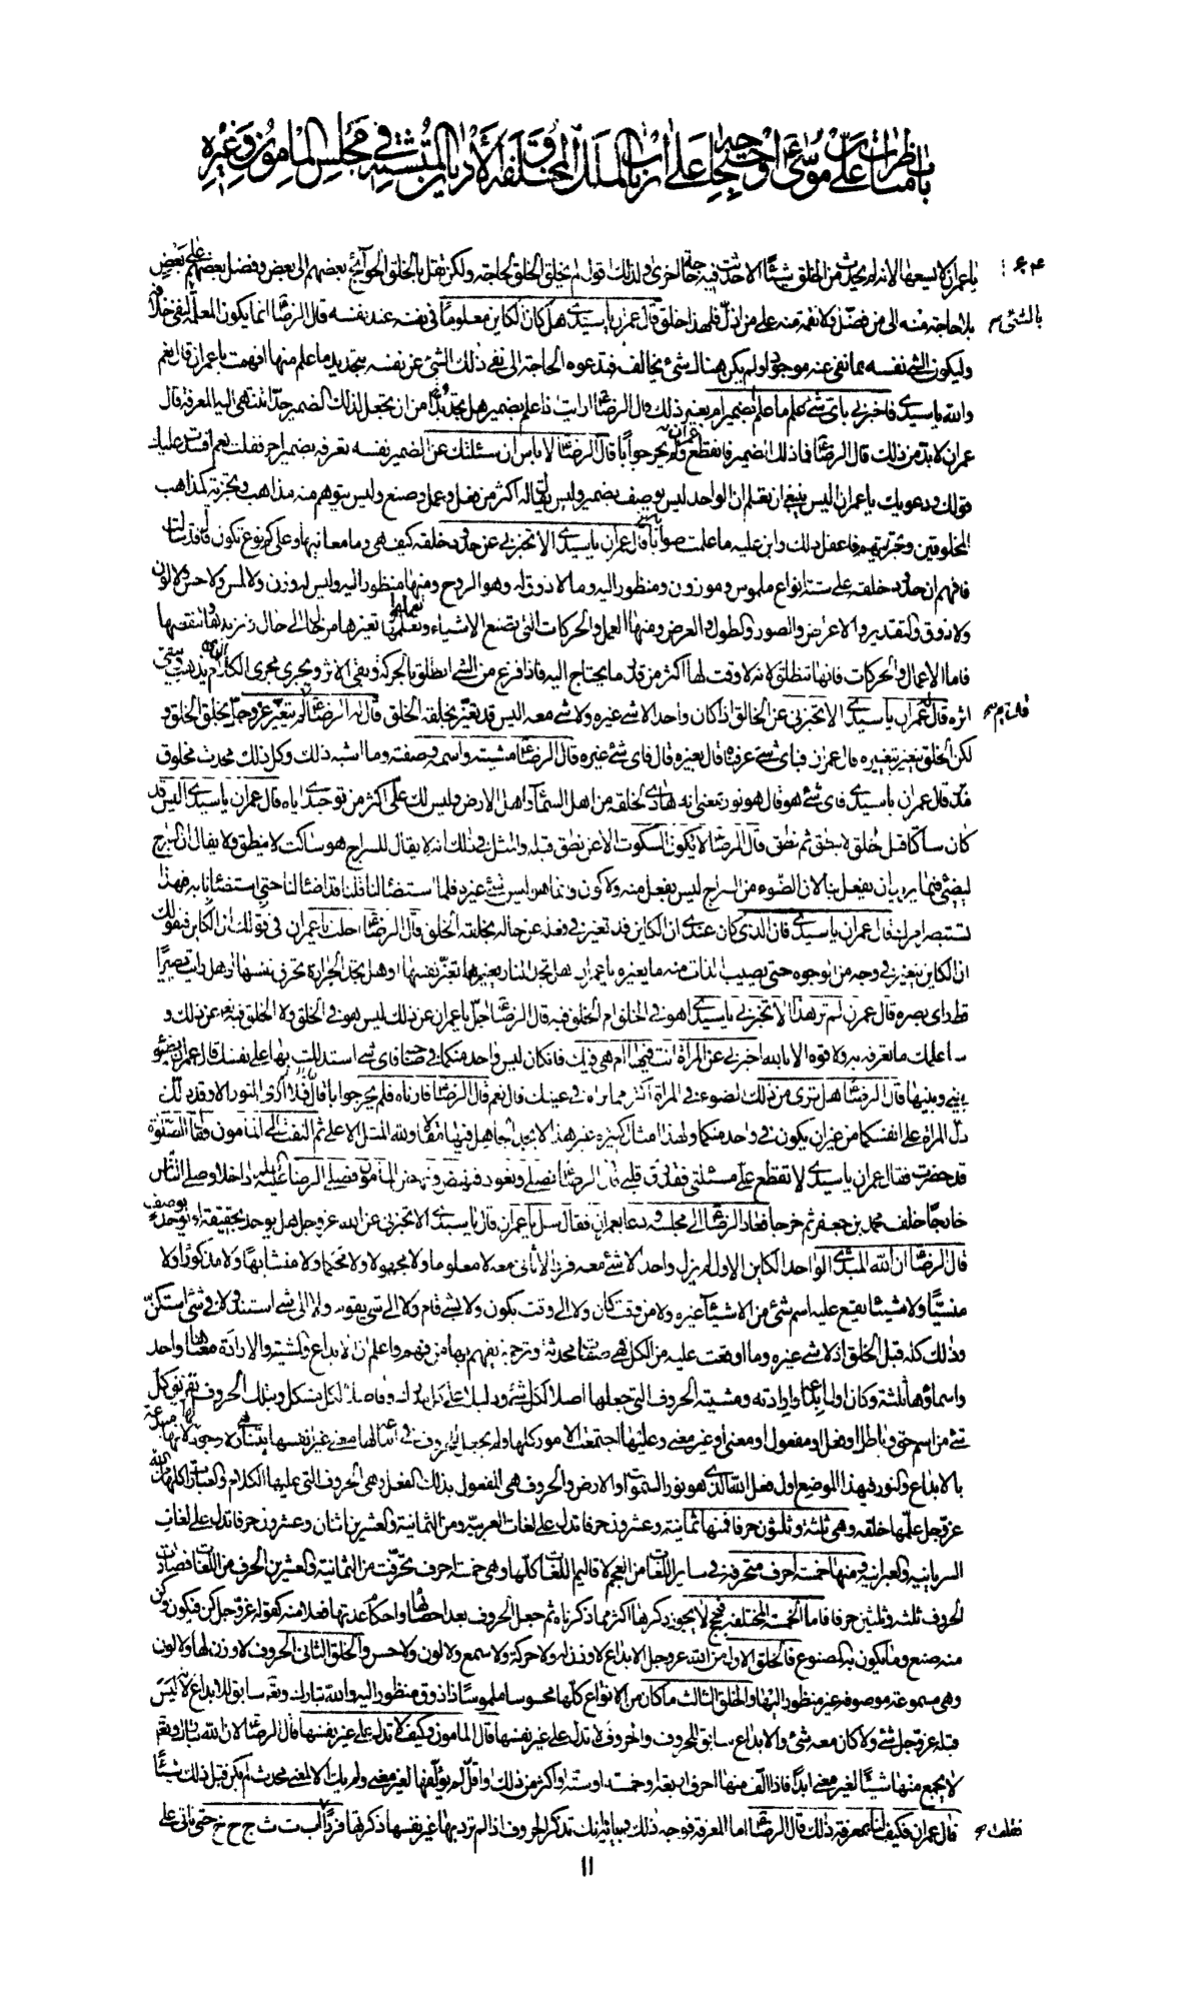 باب مناظرات علي بن موسى الرضا واحتجاجه على ارباب الملل المختلفة والاديان المتشتتة في مجلس المامون وغيره
يا عمران لا يسعها لانه لم يحدث من الخلق شيئا الا حدثت فيه حاجة اخرى ولذلك قول لم يخلق الخلق لحاجة ولكن نقل بالخلق الحوائج بعضهم الى بعض وفضل بعضهم على بعض
بلا حاجة منه الى من فضل ولا نقمة منه على من اذل فلهذا خلق قال عمران يا سيدي هل كان الكاين معلوما في نفسه عند نفسه قال الرضا انما يكون المعلمة لنفي خلافه
بالشئ
وليكون الشئ نفسه بما نفي عنه موجودا ولم يكن هناك شئ يخالفه فتدعوه الحاجة الى نفي ذلك الشئ عن نفسه بتحديد ما علم منها افهمت يا عمران قال نعم
والله يا سيدي فاخبرني باي شئ علم ما علم بضمير ام بغير ذلك قال الرضا ارايت اذا علم بضمير هل تجد بدا من ان يجعل لذلك الضمير حدا تنتهي اليه المعرفة قال
عمران لا بد من ذلك قال الرضا فما ذلك الضمير فانقطع ولم يحر جوابا قال الرضا لا باس ان سئلتك عن الضمير نفسه تعرفه بضمير اخر فقلت نعم افسدت عليك
قولك ودعويك يا عمران اليس ينبغي ان تعلم ان الواحد ليس يوصف بضمير وليس يقال له اكثر من فعل وعمل وصنع وليس يتوهم منه مذاهب وتجزية كمذاهب
المخلوقين وتجزيتهم فاعقل ذلك وابن عليه ما علمت صوابا قال عمران يا سيدي الا تخبرني عن حدود خلقه كيف هي وما معانيها وعلى كم نوع تكون قال قد سالت
فافهم ان حدود خلقه على ستة انواع ملموس وموزون ومنظور اليه وما لا ذوق له وهو الروح ومنها منظور اليه وليس له وزن ولا لمس ولا حس ولا لون
ولا ذوق والتقدير والاعراض والصور والطول والعرض ومنها العمل والحركات التي تصنع الاشياء وتعملها وتغيرها من حال الى حال وتزيدها وتنقصها
فاما الاعمال والحركات فانها تنطلق لانه لا وقت لها اكثر من قدر ما يحتاج اليه فاذا فرغ من الشئ انطلق بالحركة وبقي الاثر ويجري مجرى الكلام يذهب ويبقى
اثره قال عمران يا سيدي الا تخبرني عن الخالق اذا كان واحدا لا شئ غيره ولا شئ معه اليس قد تغير بخلقه الخلق قال له الرضا لم يتغير عز وجل بخلق الخلق و
لكن الخلق يتغير بتغييره قال عمران فباي شئ عرفناه قال بغيره قال فاي شئ غيره قال الرضا مشيته واسمه وصفته وما اشبه ذلك وكل ذلك محدث مخلوق
مدبر قال عمران يا سيدي فاي شئ هو قال هو نور بمعنى انه هادي لخلقه من اهل السماء واهل الارض وليس لك على اكثر من توحيدي اياه قال عمران يا سيدي اليس قد
كان ساكتا قبل الخلق لا ينطق ثم نطق قال الرضا لا يكون السكوت الا عن نطق قبله والمثل في ذلك انه لا يقال للسراج هو ساكت لا ينطق ولا يقال ان السراج
ليضئ فيما يريد ان يفعل بنا لان الضوء من السراج ليس بفعل منه ولا كون وانما هو ليس شئ غيره فلما استضاء لنا قلنا قد اضاء لنا حتى استضانا به فبهذا
تستبصر امرك قال عمران يا سيدي فان الذي كان عندي ان الكاين قد تغير في فعله عن حاله بخلقه الخلق قال الرضا احلت يا عمران في قولك ان الكاين
ان الكاين يتغير في وجه من الوجوه حتى يصيب الذات منه ما يغيره يا عمران هل تجد النار يغيرها تغير نفسها وهل تجد الحرارة تحرق نفسها او هل رايت بصيرا
قط راى بصره قال عمران لم ار هذا الا تخبرني يا سيدي اهو في الخلق ام الخلق فيه قال الرضا جل يا عمران عن ذلك ليس هو في الخلق ولا الخلق فيه تعالى عن ذلك و
ساعلمك ما تعرفه به ولا قوة الا بالله اخبرني عن المراة انت فيها ام هي فيك فان كان ليس واحد منكما في صاحبه فباي شئ استدللت بها على نفسك قال عمران بضوء
بيني وبينها قال الرضا هل ترى من ذلك الضوء في المراة اكثر مما تراه في عينك قال نعم قال الرضا فارناه فلم يحر جوابا قال فلا ارى النور الا وقد دلك
دل المراة على انفسكما من غير ان يكون في واحد منكما ولهذا امثال كثيرة غير هذا لا يجد الجاهل فيها مقالا ولله المثل الاعلى ثم التفت الى المامون فقال الصلوة
قد حضرت فقال عمران يا سيدي لا تقطع علي مسئلتي فقد رق قلبي قال الرضا نصلي ونعود فنهض ونهض المامون فصلى الرضا داخلا وصلى الناس
خارجا خلف محمد بن جعفر ثم خرجا فعاد الرضا الى مجلسه ودعا بعمران فقال سل يا عمران قال يا سيدي الا تخبرني عن الله عز وجل هل يوحد بحقيقة او يوحد بوصف
قال الرضا ان الله المبدئ الواحد الكاين الاول لم يزل واحدا لا شئ معه فردا لا ثاني معه لا معلوما ولا مجهولا ولا محكما ولا متشابها ولا مذكورا ولا
منسيا ولا شيئا يقع عليه اسم شئ من الاشياء غيره ولا من وقت كان ولا الى وقت يكون ولا بشئ قام ولا الى شئ يقوم ولا الى شئ استند ولا في شئ استكن
وذلك كله قبل الخلق اذ لا شئ غيره وما اوقعت عليه من الكل فهي صفات محدثة وترجمة يفهم بها من فهم واعلم ان الابداع والمشية والارادة معناها واحد
واسماؤها ثلثة وكان اول ابداعه وارادته ومشيته الحروف التي جعلها اصلا لكل شئ ودليلا على كل مدرك وفاصلا لكل مشكل وبتلك الحروف تفريق كل
شئ من اسم حق وباطل او فعل او مفعول او معنى او غير معنى وعليها اجتمعت الامور كلها ولم يجعل للحروف في ابداعه لها معنى غير نفسها يتناهى ولا وجود لانها مبدعة
بالابداع والنور في هذا الموضع اول فعل الله الذي هو نور السموات والارض والحروف هي المفعول بذلك الفعل وهي الحروف التي عليها الكلام والعبارات كلها من الله
عز وجل علمها خلقه وهي ثلثة وثلثون حرفا فمنها ثمانية وعشرون حرفا تدل على لغات العربية ومن الثمانية والعشرين اثنان وعشرون حرفا تدل على لغات
السريانية والعبرانية ومنها خمسة احرف متحرفة في ساير اللغات من العجم لاقاليم اللغات كلها وهي خمسة احرف تحرفت من الثمانية والعشرين الحرف من اللغات فصارت
الحروف ثلثة وثلثين حرفا فاما الخمسة المختلفة فبحجج لا يجوز ذكرها اكثر مما ذكرناه ثم جعل الحروف بعد احصائها واحكام عدتها فعلا منه كقوله عز وجل كن فيكون وكن
منه صنع وما يكون به المصنوع فالخلق الاول من الله عز وجل الابداع لا وزن له ولا حركة ولا سمع ولا لون ولا حس والخلق الثاني الحروف لا وزن لها ولا لون
وهي مسموعة موصوفة غير منظور اليها والخلق الثالث ما كان من الانواع كلها محسوسا ملموسا ذا ذوق منظور اليه والله تبارك وتعالى سابق للابداع لانه ليس
قبله عز وجل شئ ولا كان معه شئ والابداع سابق للحروف والحروف لا تدل على غير نفسها قال المامون وكيف لا تدل على غير نفسها قال الرضا لان الله تبارك وتعالى
لا يجمع منها شيئا لغير معنى ابدا فاذا الف منها احرف اربعة او خمسة او ستة او اكثر من ذلك او اقل لم يؤلفها لغير معنى ولم يك الا لمعنى محدث لم يكن قبل ذلك شيئا
قال عمران فكيف لنا بمعرفة ذلك قال الرضا اما المعرفة فوجه ذلك وبيانه انك تذكر الحروف اذا لم ترد بها غير نفسها ذكرتها فردا ا ب ت ث ج ح خ حتى تاتي على
١١